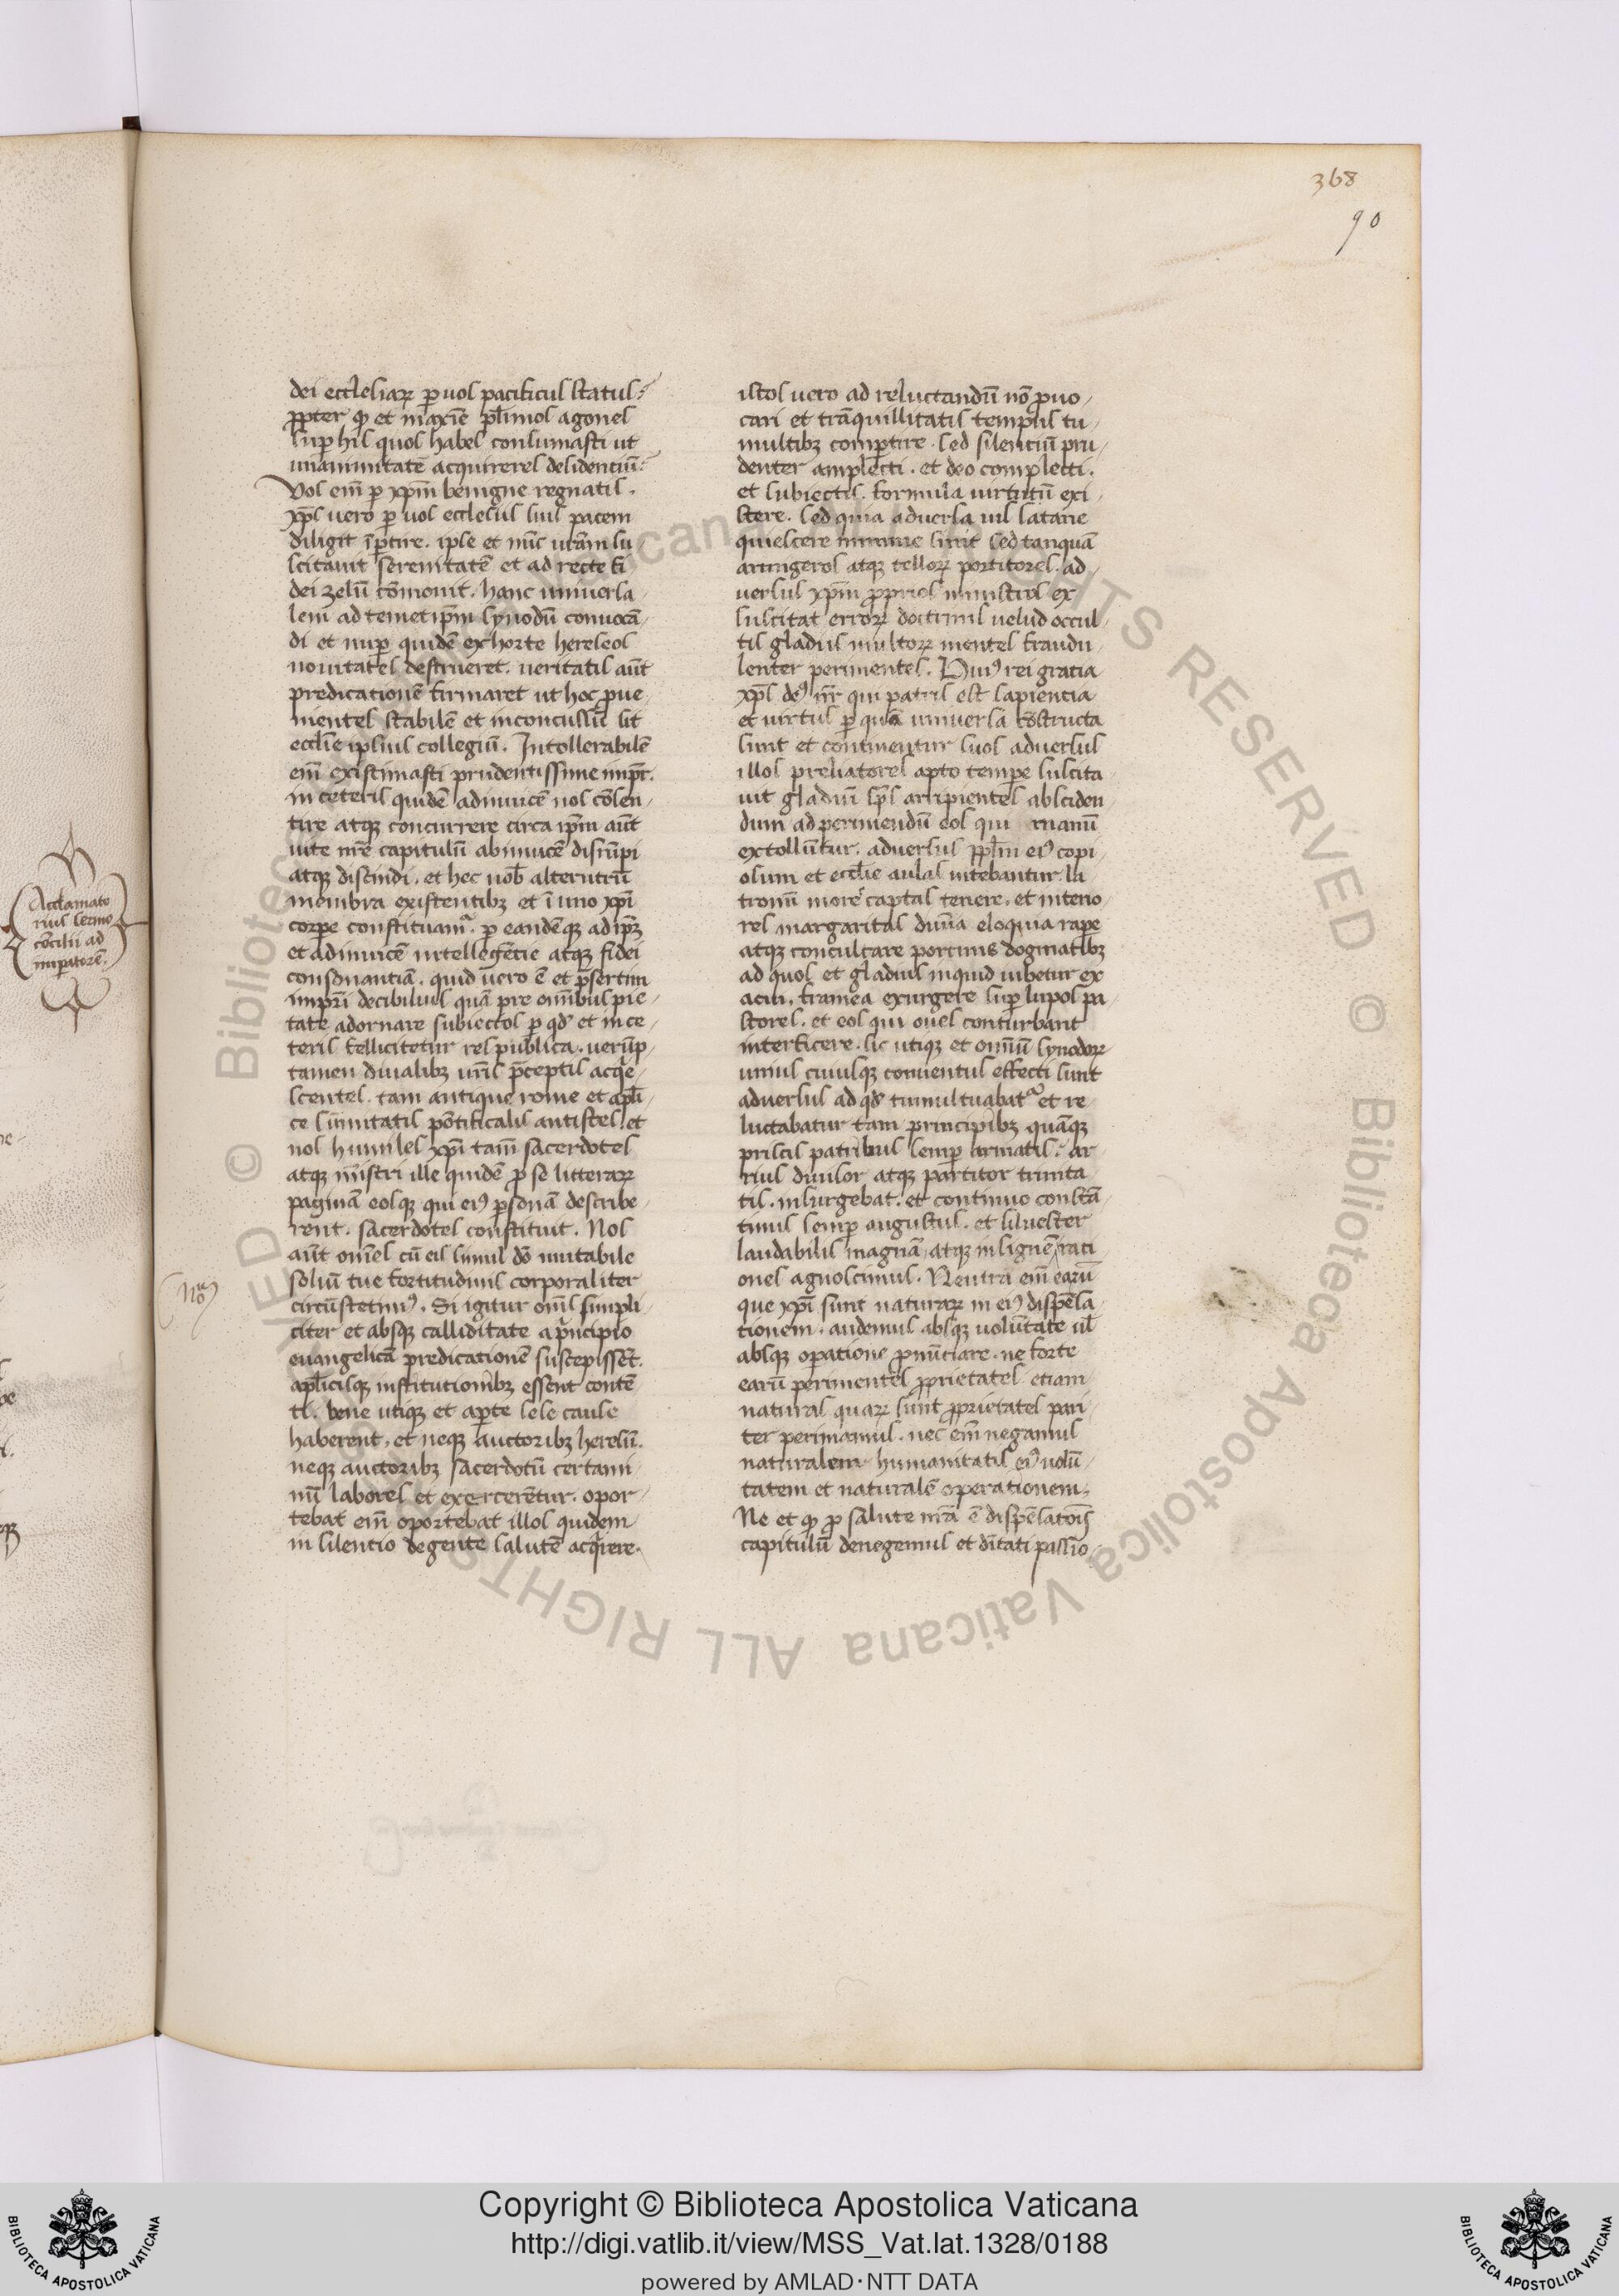 368
90
dei eccl̄esiaꝝ ꝑ uos pacificus status:
ꝓpter qđ et maxīe pl̄imos agones
suꝑ his quos habes consumasti ut
unanimitatē acquireres desidentiū:
Vos em̄ ꝑ xp̄m benigne regnatis.
xp̄s uero ꝑ uos ecclesiis suis pacem
diligit īꝑtire. ipse et nūc urām su
scitauit serenitatē et ad recte fi
dei zelū cōmouit. hanc uniuersa
lem ad temet ip̄m synodū conuocā
di et nuꝑ quidē exhorte hereseos
nouitates destrueret. ueritatis aūt
predicationē firmaret ut hoc ꝓue
nientes stabilē et inconcussū sit
eccl̄ie ipsius collegiū. Intollerabilē
em̄ existimasti prudentissime imp̄r.
in ceteris quidē adinuicē nos cōsen
tire atqꝫ concurrere circa ip̄m aūt
uite nr̄e capitulū abinuicē disrūpi
atqꝫ discindi. et hec nob̄ alterutrū
membra existentibꝫ et ī uno xp̄i
corꝑe constituamᷓ. ꝑ eandēqꝫ ad ip̄ꝫ
et adinuicē intellegētie atqꝫ fidei
consonantiā. quid uero ē et p̄sertim
imꝑri decibilius quā pre omībus pie
tate adornare subiectos ꝑ qđ et in ce
teris fellicitetur res publica. uerūp
tamen diualibꝫ ur̄is p̄ceptis acqͥe
scentes. tam antique rome et apl̄i
ce sūmitatis pōtificalis antistes et
nos humiles xp̄i tam̄ sacerdotes
atqꝫ mīstri ille quidē ꝓ se litteraꝝ
paginā eosqꝫ qui eiꝰ ꝑsonā describe
rent. sacerdotes constituit. Nos
aūt omēs cū eis simul dō mutabile
soliū tue fortitudinis corporaliter
circūstetimꝰ. Si igitur om̄s simpli
citer et absqꝫ calliditate a pͥncipio
euangelicā predicationē suscepissēt.
apl̄icisqꝫ institutionibꝫ essent contē
ti. bene utiqꝫ et aꝑte sese cause
haberent. et neqꝫ auctoribꝫ heresiū.
neqꝫ auctoribꝫ sacerdotū certami
nū labores et exercerētur. opor
tebat em̄ oportebat illos quidem
in silentio degente salutē acqͥrere.
istos uero ad reluctandū nō ꝓuo
cari et trāquillitatis tempus tu
multibꝫ comꝑtire. sed silenciū pru
denter amplecti. et deo complecti.
et subiectis. formula uirtutū exi
stere. sed quia aduersa uis satane
quiescere minime sinit sed tanquā
armigeros atqꝫ telloꝝ portitores. ad
uersus xp̄m ꝓprios ministros ex
suscitat erroꝝ doctrinis uelud occul
tis gladiis multoꝝ mentes fraudu
lenter perimentes. Huiꝰ rei gratia
xp̄s deꝰ nr̄ qui patris est sapiencia
et uirtus ꝑ quā uniuersa cōstructa
sunt et continentur suos aduersus
illos preliatores apto temꝑe suscita
uit gladiū sp̄s arripientes absciden
dum ad perimendū eos qui manū
extollūtur. aduersus ppl̄m eiꝰ copi
osum et eccl̄ie aulas nitebantur. la
tronū more captas tenere. et interio
res margaritas diuīa eloquia raꝑe
atqꝫ conculcare porcinis dogmatibꝫ
ad quos et gladius inquid iubetur ex
acui. framea exurgere suꝑ lupos pa
stores. et eos qui oues conturbant
interficere. sic utiqꝫ et omīū synodoꝝ
unius cuiusqꝫ conuentus effecti sunt
aduersus ad qđ tumultuabatᷓ et re
luctabatur tam principibꝫ quāqꝫ
priscis patribus semꝑ armatis. ar
rius diuisor atqꝫ partitor trinita
tis. insurgebat. et continuo constā
tinus semꝑ augustus. et siluester
laudabilis magnā atqꝫ insignē rati
ones agnoscimus. Neutra em̄ earū
que xp̄i sunt naturaꝝ in eiꝰ dispēsa
tionem. audemus absqꝫ uolūtate ul̄
absqꝫ oꝑatione ꝓnūtiare. ne forte
earū perimentes ꝓprietates etiam
naturas quaꝝ sunt ꝓprietates pari
ter perimamus. nec em̄ negamus
naturalem humanitatis eiꝰ uolū
tatem et naturalē operationem.
Ne et qđ ꝓ salute nr̄a ē dispēsatōis
capitulū denegemus et dītati passio
Acclamato
rius sermo
cōcilii ad
imꝑatorē.
Copyright © Biblioteca Apostolica Vaticana
http://digi.vatlib.it/view/MSS_Vat.lat.1328/0188
powered by AMLAD·NTT DATA
BIBLIOTECA APOSTOLICA VATICANA
BIBLIOTECA APOSTOLICA VATICANA